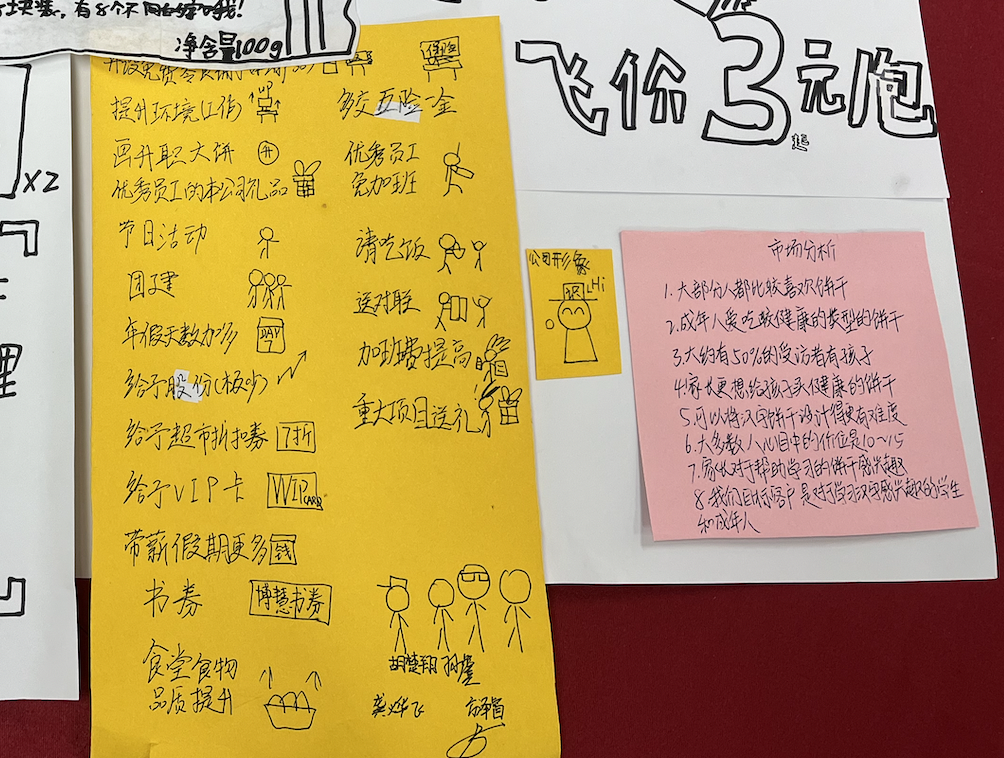 块装，有8个不同的字哦！
净含量100g
X2
理
提升环境(工作)
画升职大饼 升
优秀员工的本公司礼品
节日活动
团建
年假天数加多 DAY
给予股份(极少)
给予超市折扣券 7折
给予VIP卡 VIP CARD
带薪假期更多 钱
书券 博慧书券
食堂食物
品质提升
保险
多交五险一金
优秀员工
免加班
请吃饭
送对联
加班费提高
重大项目送礼
飞价3元
起
公司形象
Hi
市场分析
1.大部分人都比较喜欢饼干
2.成年人爱吃较健康的类型的饼干
3.大约有50%的受访者有孩子
4.家长更想给孩子买健康的饼干
5.可以将汉字饼干设计得更有难度
6.大多数人心目中的价位是10~15
7.家长对于帮助学习的饼干感兴趣
8.我们目标客户是对于学习汉字感兴趣的学生
和成年人